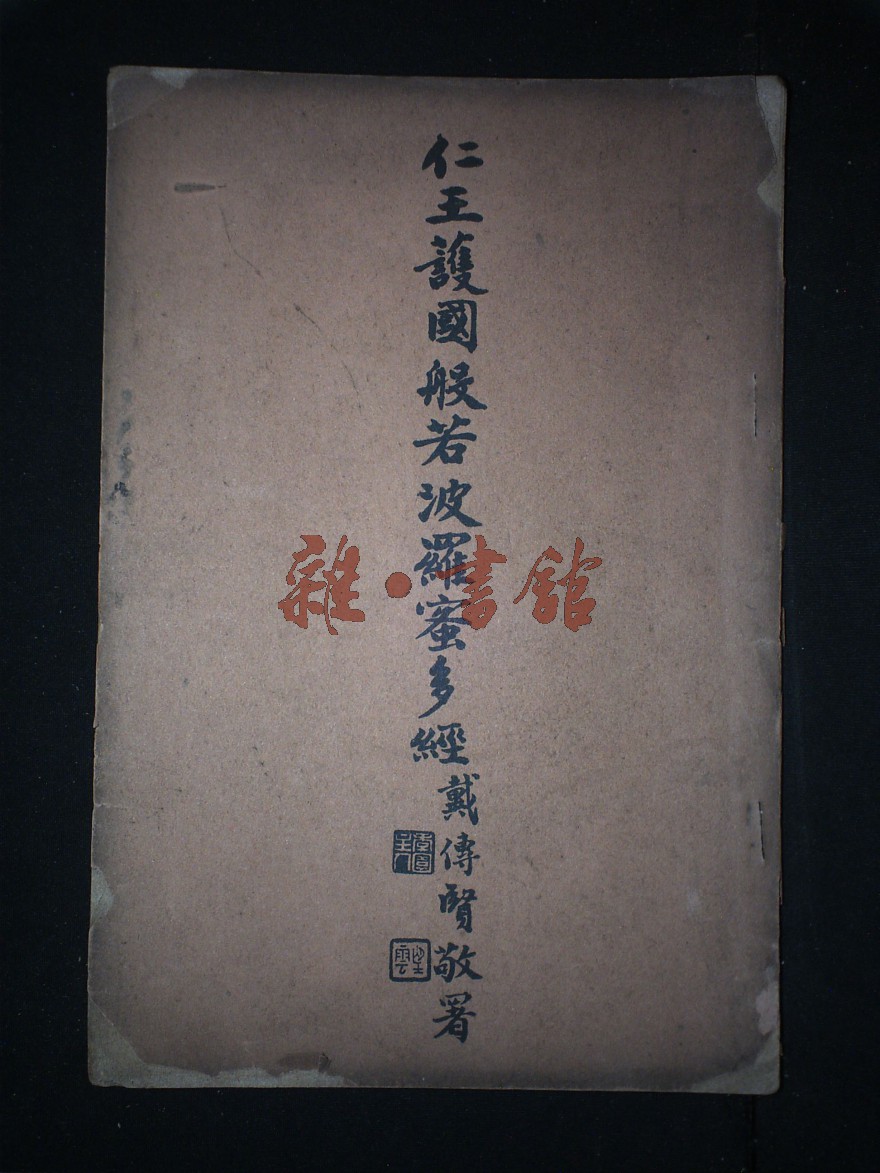 仁王護國般若波羅蜜多經
戴傳賢敬署
雜·書館